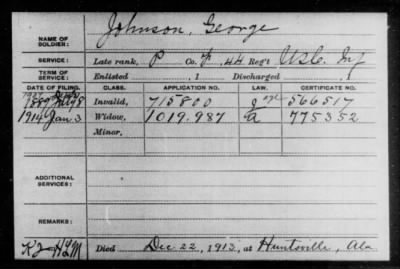 NAME OF SOLDIER: Johnson, George
SERVICE: Late rank, P Co. F, 44 Reg't U.S.C. Inf
TERM OF SERVICE: Enlisted , 1 Discharged , 1
DATE OF FILING. CLASS. APPLICATION NO. LAW. CERTIFICATE NO.
1889 July 8 Invalid, 715800 566517
1914 Jan 3 Widow, 1019.987 a 775352
Minor,
ADDITIONAL SERVICES:
REMARKS:
Died Dec 22, 1913, at Huntsville, Ala